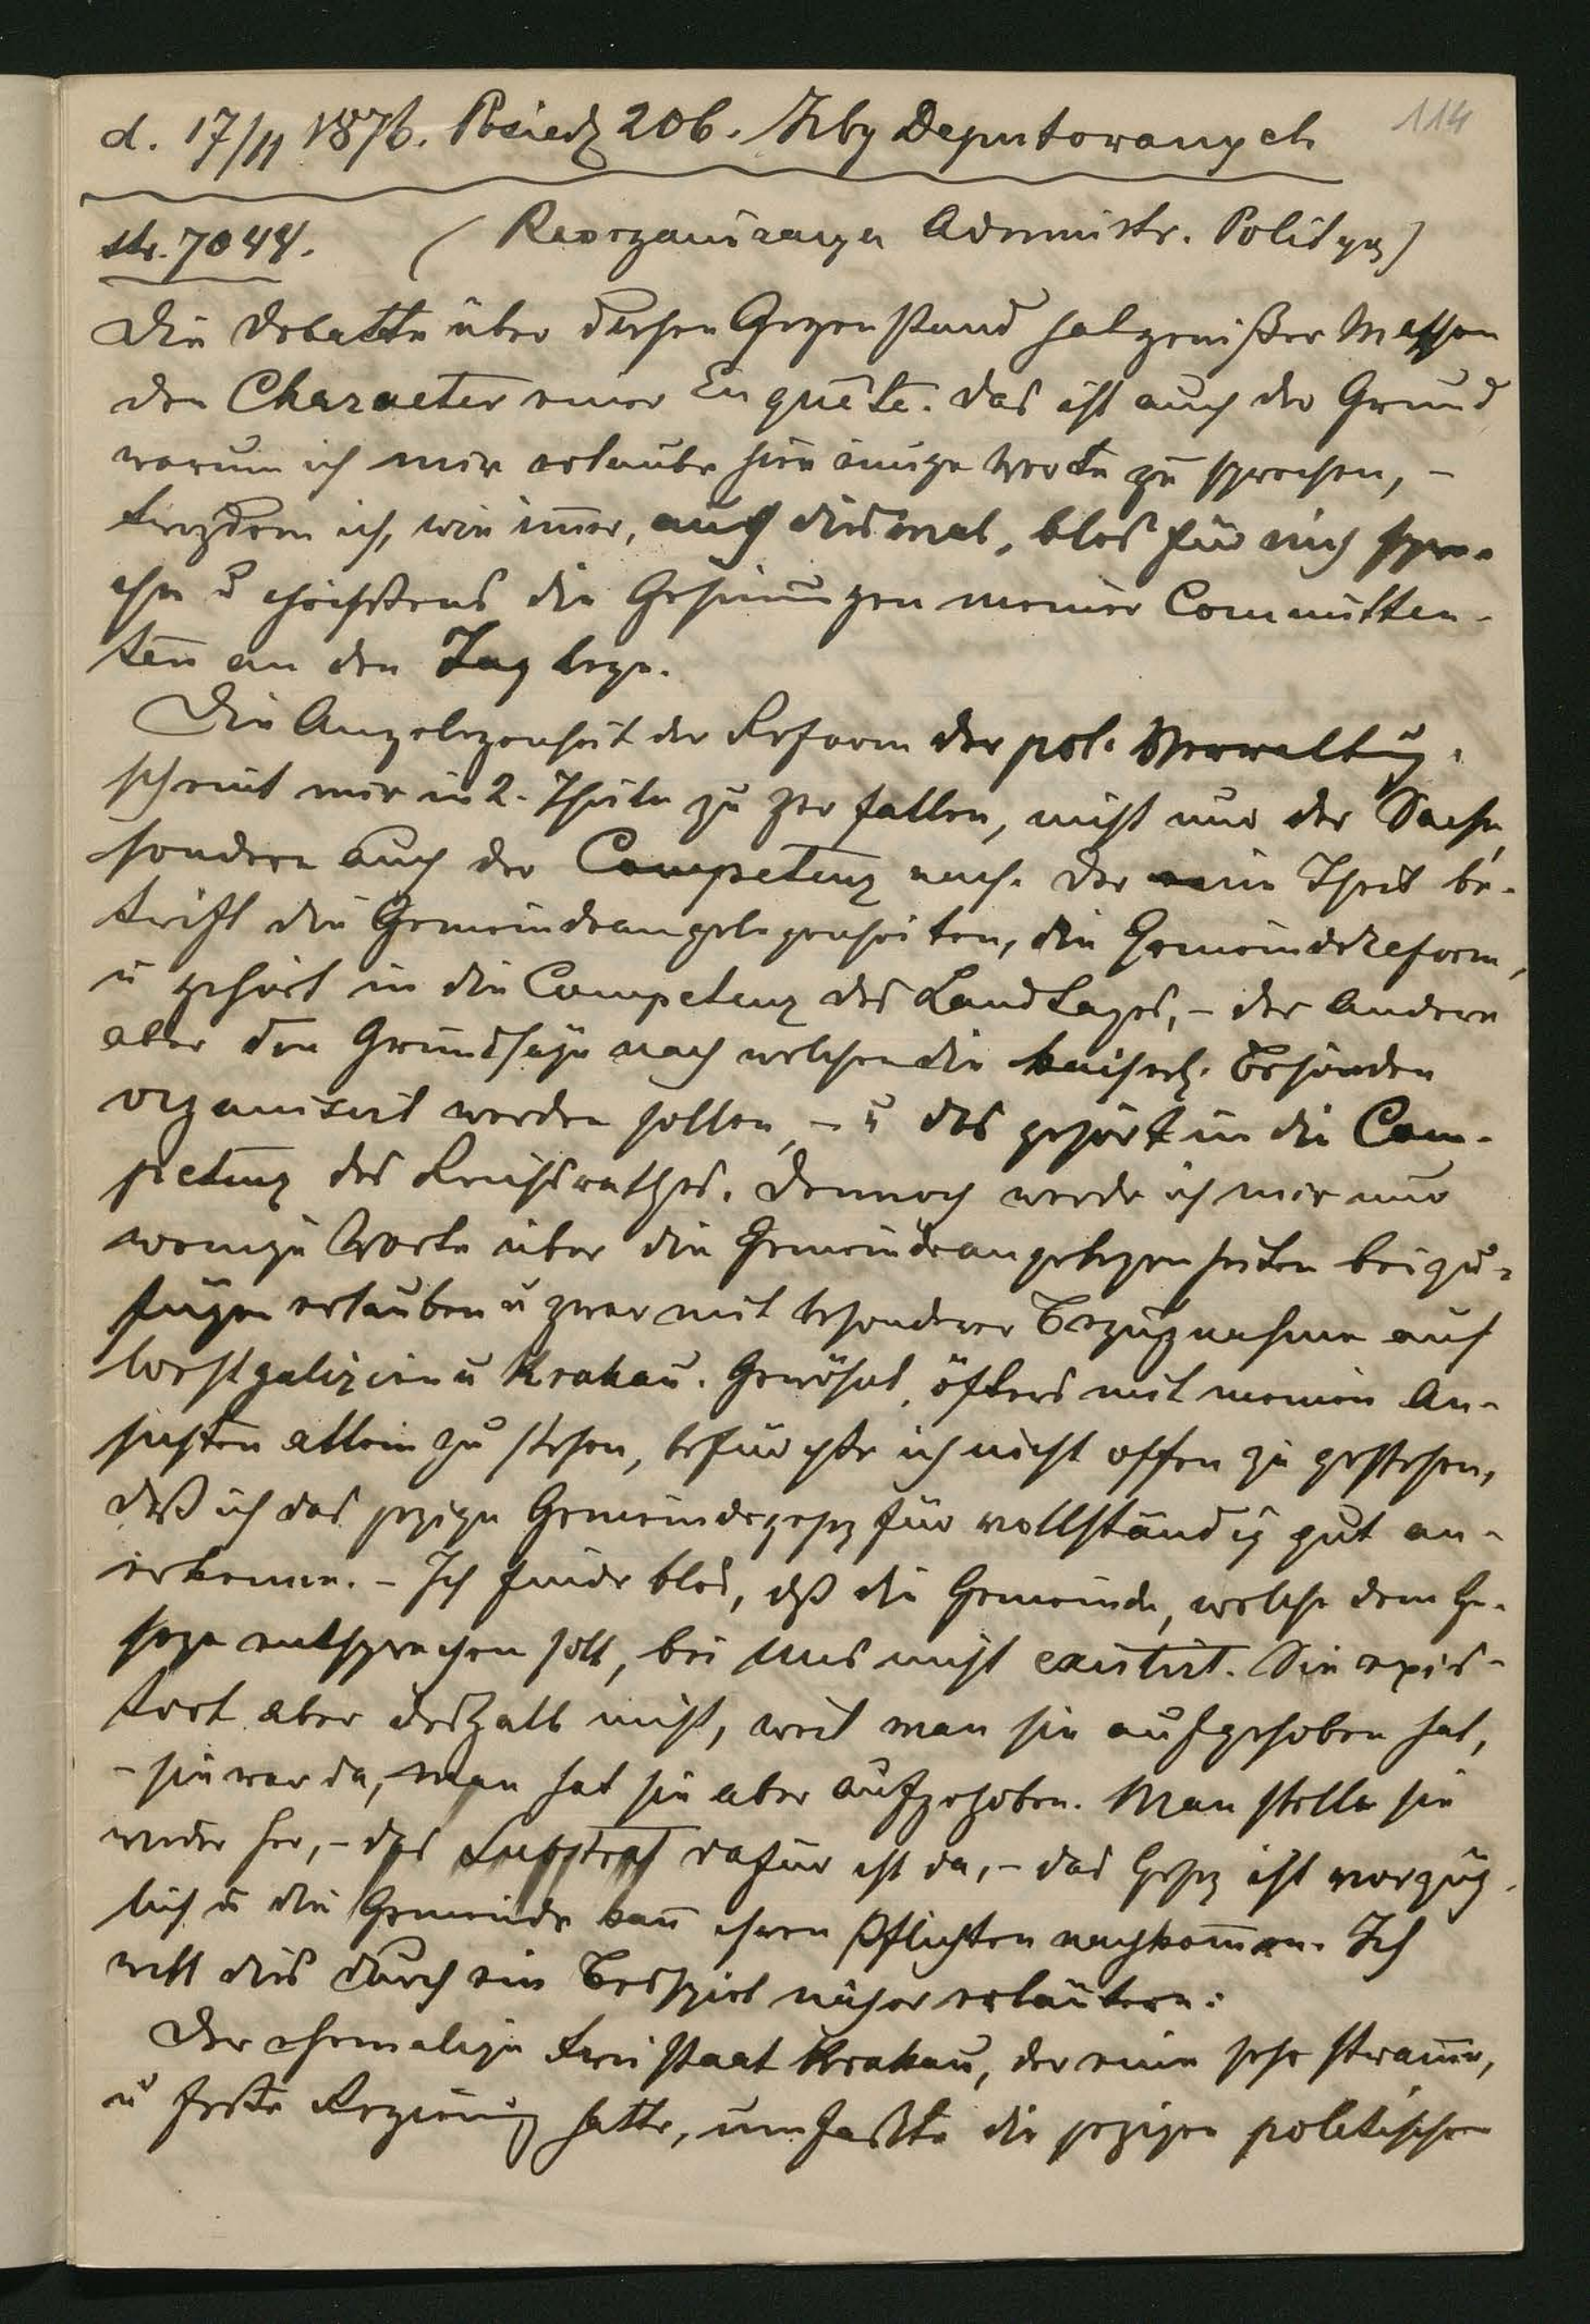 114
d. 17/11 1876. Posiedz 206. Izby Deputowanych
str. 7044. (Reorganizacya Administr. Polityz)
Die Debatte über diesen Gegenstand hat gewißer Massen
den Character einer Enquête. Das ist auch der Grund
warum ich mir erlaube hier einige Worte zu sprechen, –
trozdem ich, wie im̅er, auch diesmal, blos für mich spre-
che u höchstens die Gesinnungen meiner Committen-
ten an den Tag lege.
Die Angelegenheit der Reform der pol. Verwaltung
scheint mir in 2. Theile zu zerfallen, nicht nur der Sache,
sondern auch der Competenz nach. Der eine Theil be-
trifft die Gemeindeangelegenheiten, die Gemeindereform,
u gehört in die Competenz des Landtages, – der Andere
aber den Grundsäze nach welchen die kaiserl. Behörden
organisirt werden sollen, – u das gehört in die Com-
petenz des Reichsrathes. Dennoch werde ich mir nur
wenige Worte über die Gemeindeangelegenheiten beizu-
fügen erlauben u zwar mit besonderer Bezugnahme auf
Westgalizien u Krakau. Gewöhnt, öfters mit meinen An-
sichten allein zu stehen, befürchte ich nicht offen zu gestehen,
daß ich das jezige Gemeindegesez für vollständig gut an-
erkenne. – Ich finde blos, dß die Gemeinde, welche dem Ge-
seze entsprechen soll, bei uns nicht existirt. Sie exis-
tirt aber deshalb nicht, weil man sie aufgehoben hat,
– sie war da, man hat sie aber aufgehoben. Man stelle sie
wieder her, – das Substrat dafür ist da, – das Gesez ist vorzüg-
lich u die Gemeinde kan̅ ihren Pflichten nachkom̅en. Ich
will dies durch ein Beispiel näher erläutern:
Der ehemalige Freistaat Krakau, der eine sehr stram̅e,
u feste Regierung hatte, umfaßte die jezigen politischen